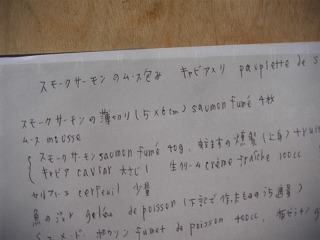 スモークサーモンのムース包み キャビア入り paupiette de s
スモークサーモンの薄切り(5×6cm) saumon fumé 4枚
ムース mousse
スモークサーモン saumon fumé 40g, の燻製(上身) truit
キャビア caviar 大さじ1 生クリーム crème fraîche 100cc
セルフィーユ cerfeuil 少量
魚のジュレ gelée de poisson (下記で作ったものの適量)
フュメ・ド・ポワソン fumet de poisson 400cc, 板ゼラチン